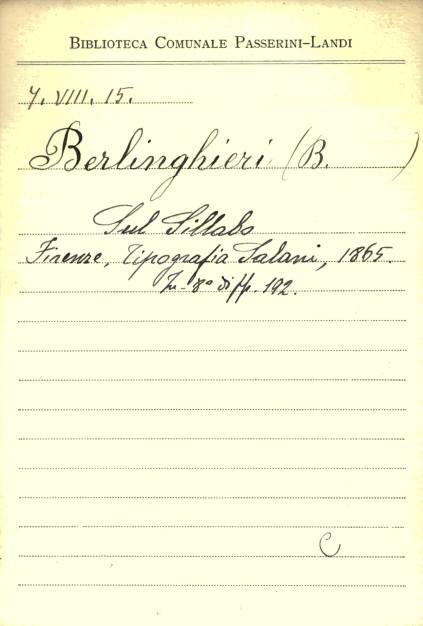 BIBLIOTECA COMUNALE PASSERINI-LANDI
7. VIII. 15.
Berlinghieri (B. )
Sul Sillabo
Firenze, Tipografia Salani, 1865.
In-8° di pp. 192.
C